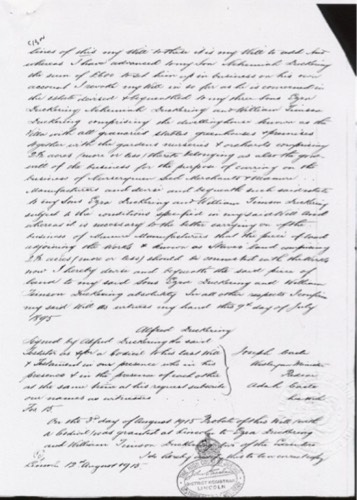 of this my Will
whereas I have advanced to my Son Nehemiah Duckering
the sum of to set him up in business on his own
account I revoke my Will in so far as he is concerned in
the estate devised & bequeathed to my three Sons Ezra
Duckering Nehemiah Duckering and William Timson
Duckering comprising the dwellinghouse known as the
Villa with all stables greenhouses & premises
together with the gardens nurseries & orchards comprising
2½ acres (more or less) thereto belonging as also the good
will of the business for the purpose of carrying on the
business of Nurserymen Seed Merchants &
Manufacturers and devise and bequeath such said estate
to my Sons Ezra Duckering and William Timson Duckering
subject to the conditions specified in my said Will And
whereas it is necessary to the better carrying on of the
business of Manure Manufacturers that the piece of land
adjoining the Works & known as land comprising
2½ acres (more or less) should be connected with the Works
now I hereby devise and bequeath the said piece of
land to my said Sons Ezra Duckering and William
Timson Duckering absolutely In all other respects I confirm
my said Will As witness my hand this 9th day of July
1895
Alfred Duckering
Signed by Alfred Duckering the said
Testator as & for a Codicil to his last Will
& Testament in our presence who in his
presence & in the presence of each other
at the same time at his request subscribe
our names as witnesses
Joseph
Wesleyan Minister
Adah
Fos 15
On the 3rd day of August 1915 Probate of this Will with
a Codicil was granted at Lincoln to Ezra Duckering
and William Timson Duckering two of the Executors
I do hereby certify this to be a correct copy
Lincoln 13 August 1915
DISTRICT REGISTRAR
LINCOLN